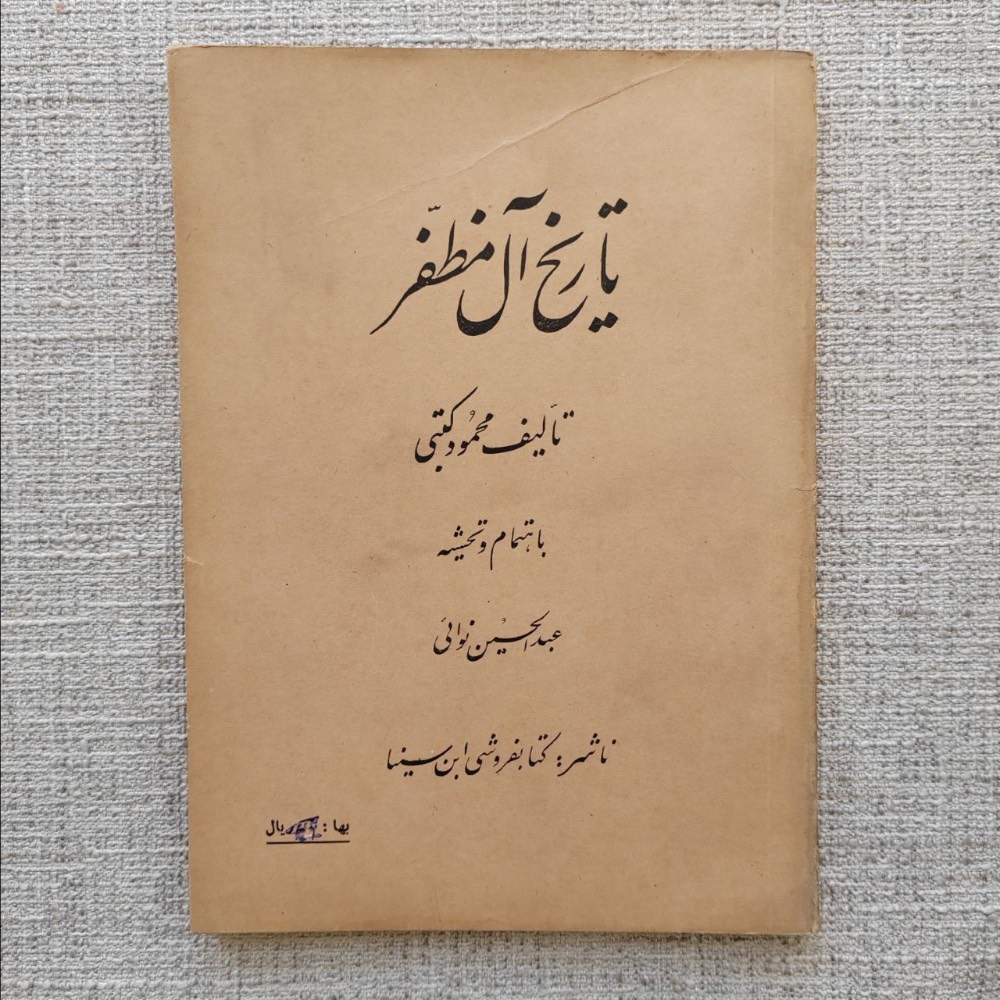 تاریخ آل مظفّر
تألیف محمُود کتبی
باهتمام و تحشیه
عبدالحسُین نوائی
ناشر: کتابفروشی ابن سینا
بها: ریال